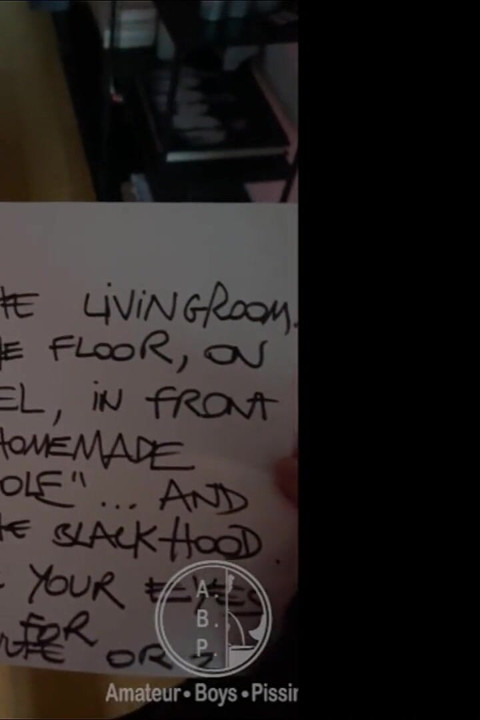 HE LIVINGROOM.
HE FLOOR, ON
EL, IN FRONT
HOMEMADE
OLE" ... AND
HE BLACKHOOD.
YOUR EYES
FOR
OR
A.
B.
P.
Amateur • Boys • Pissin